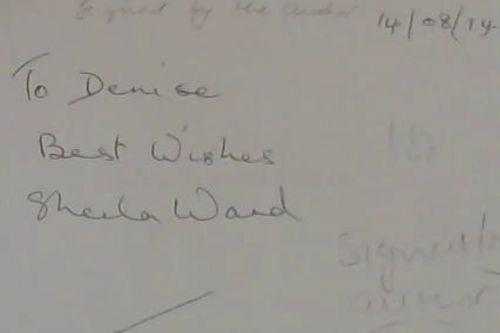 Signed by the author
14/08/14
To Denise
Best Wishes
Sheila Ward
Signed by
author